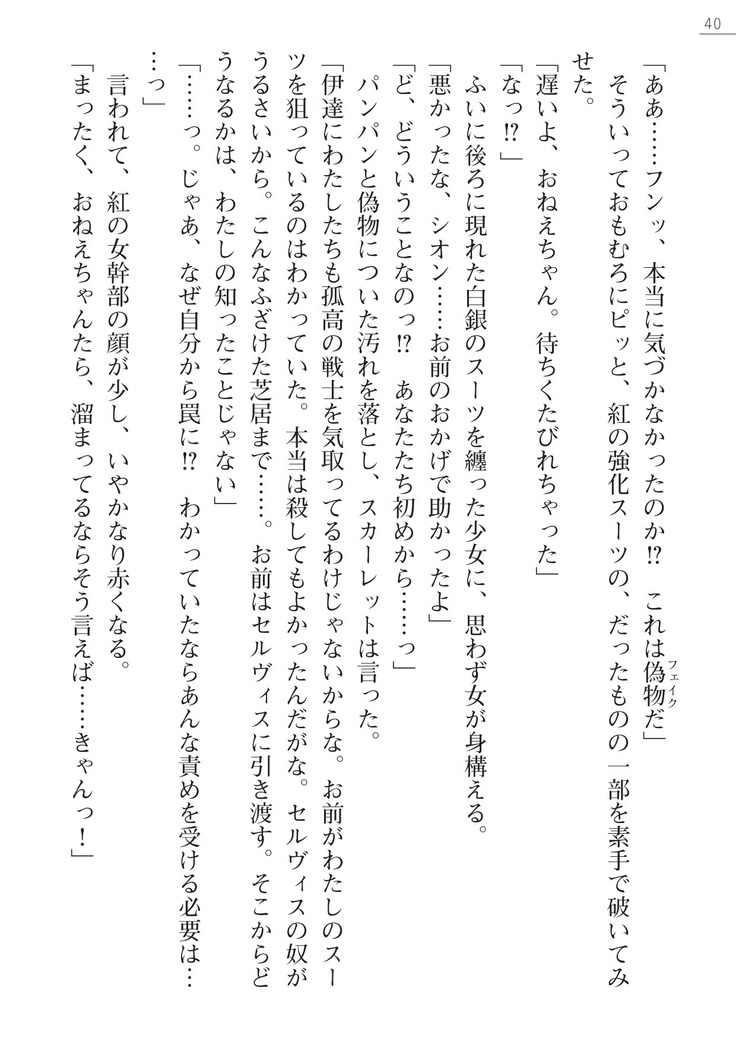 40
「ああ……フンッ、本当に気づかなかったのか!?　これは偽物だ」
フェイク
そういっておもむろにピッと、紅の強化スーツの、だったものの一部を素手で破いてみ
せた。
「遅いよ、おねえちゃん。待ちくたびれちゃった」
「なっ!?」
ふいに後ろに現れた白銀のスーツを纏った少女に、思わず女が身構える。
「悪かったな、シオン……お前のおかげで助かったよ」
「ど、どういうことなのっ!?　あなたたち初めから……っ」
パンパンと偽物についた汚れを落とし、スカーレットは言った。
「伊達にわたしたちも孤高の戦士を気取ってるわけじゃないからな。お前がわたしのスー
ツを狙っているのはわかっていた。本当は殺してもよかったんだがな。セルヴィスの奴が
うるさいから。こんなふざけた芝居まで……。お前はセルヴィスに引き渡す。そこからど
うなるかは、わたしの知ったことじゃない」
「……っ。じゃあ、なぜ自分から罠に!?　わかっていたならあんな責めを受ける必要は…
…っ」
言われて、紅の女幹部の顔が少し、いやかなり赤くなる。
「まったく、おねえちゃんたら、溜まってるならそう言えば……きゃんっ！」